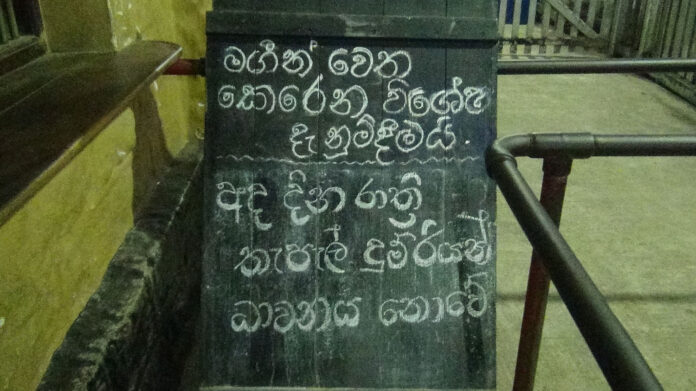 මගීන් වෙත
කොරෙන විශේෂ
දැනුම්දීමයි.
අද දින රාත්‍රි
තැපැල් දුම්රියන්
ධාවනය නොවේ